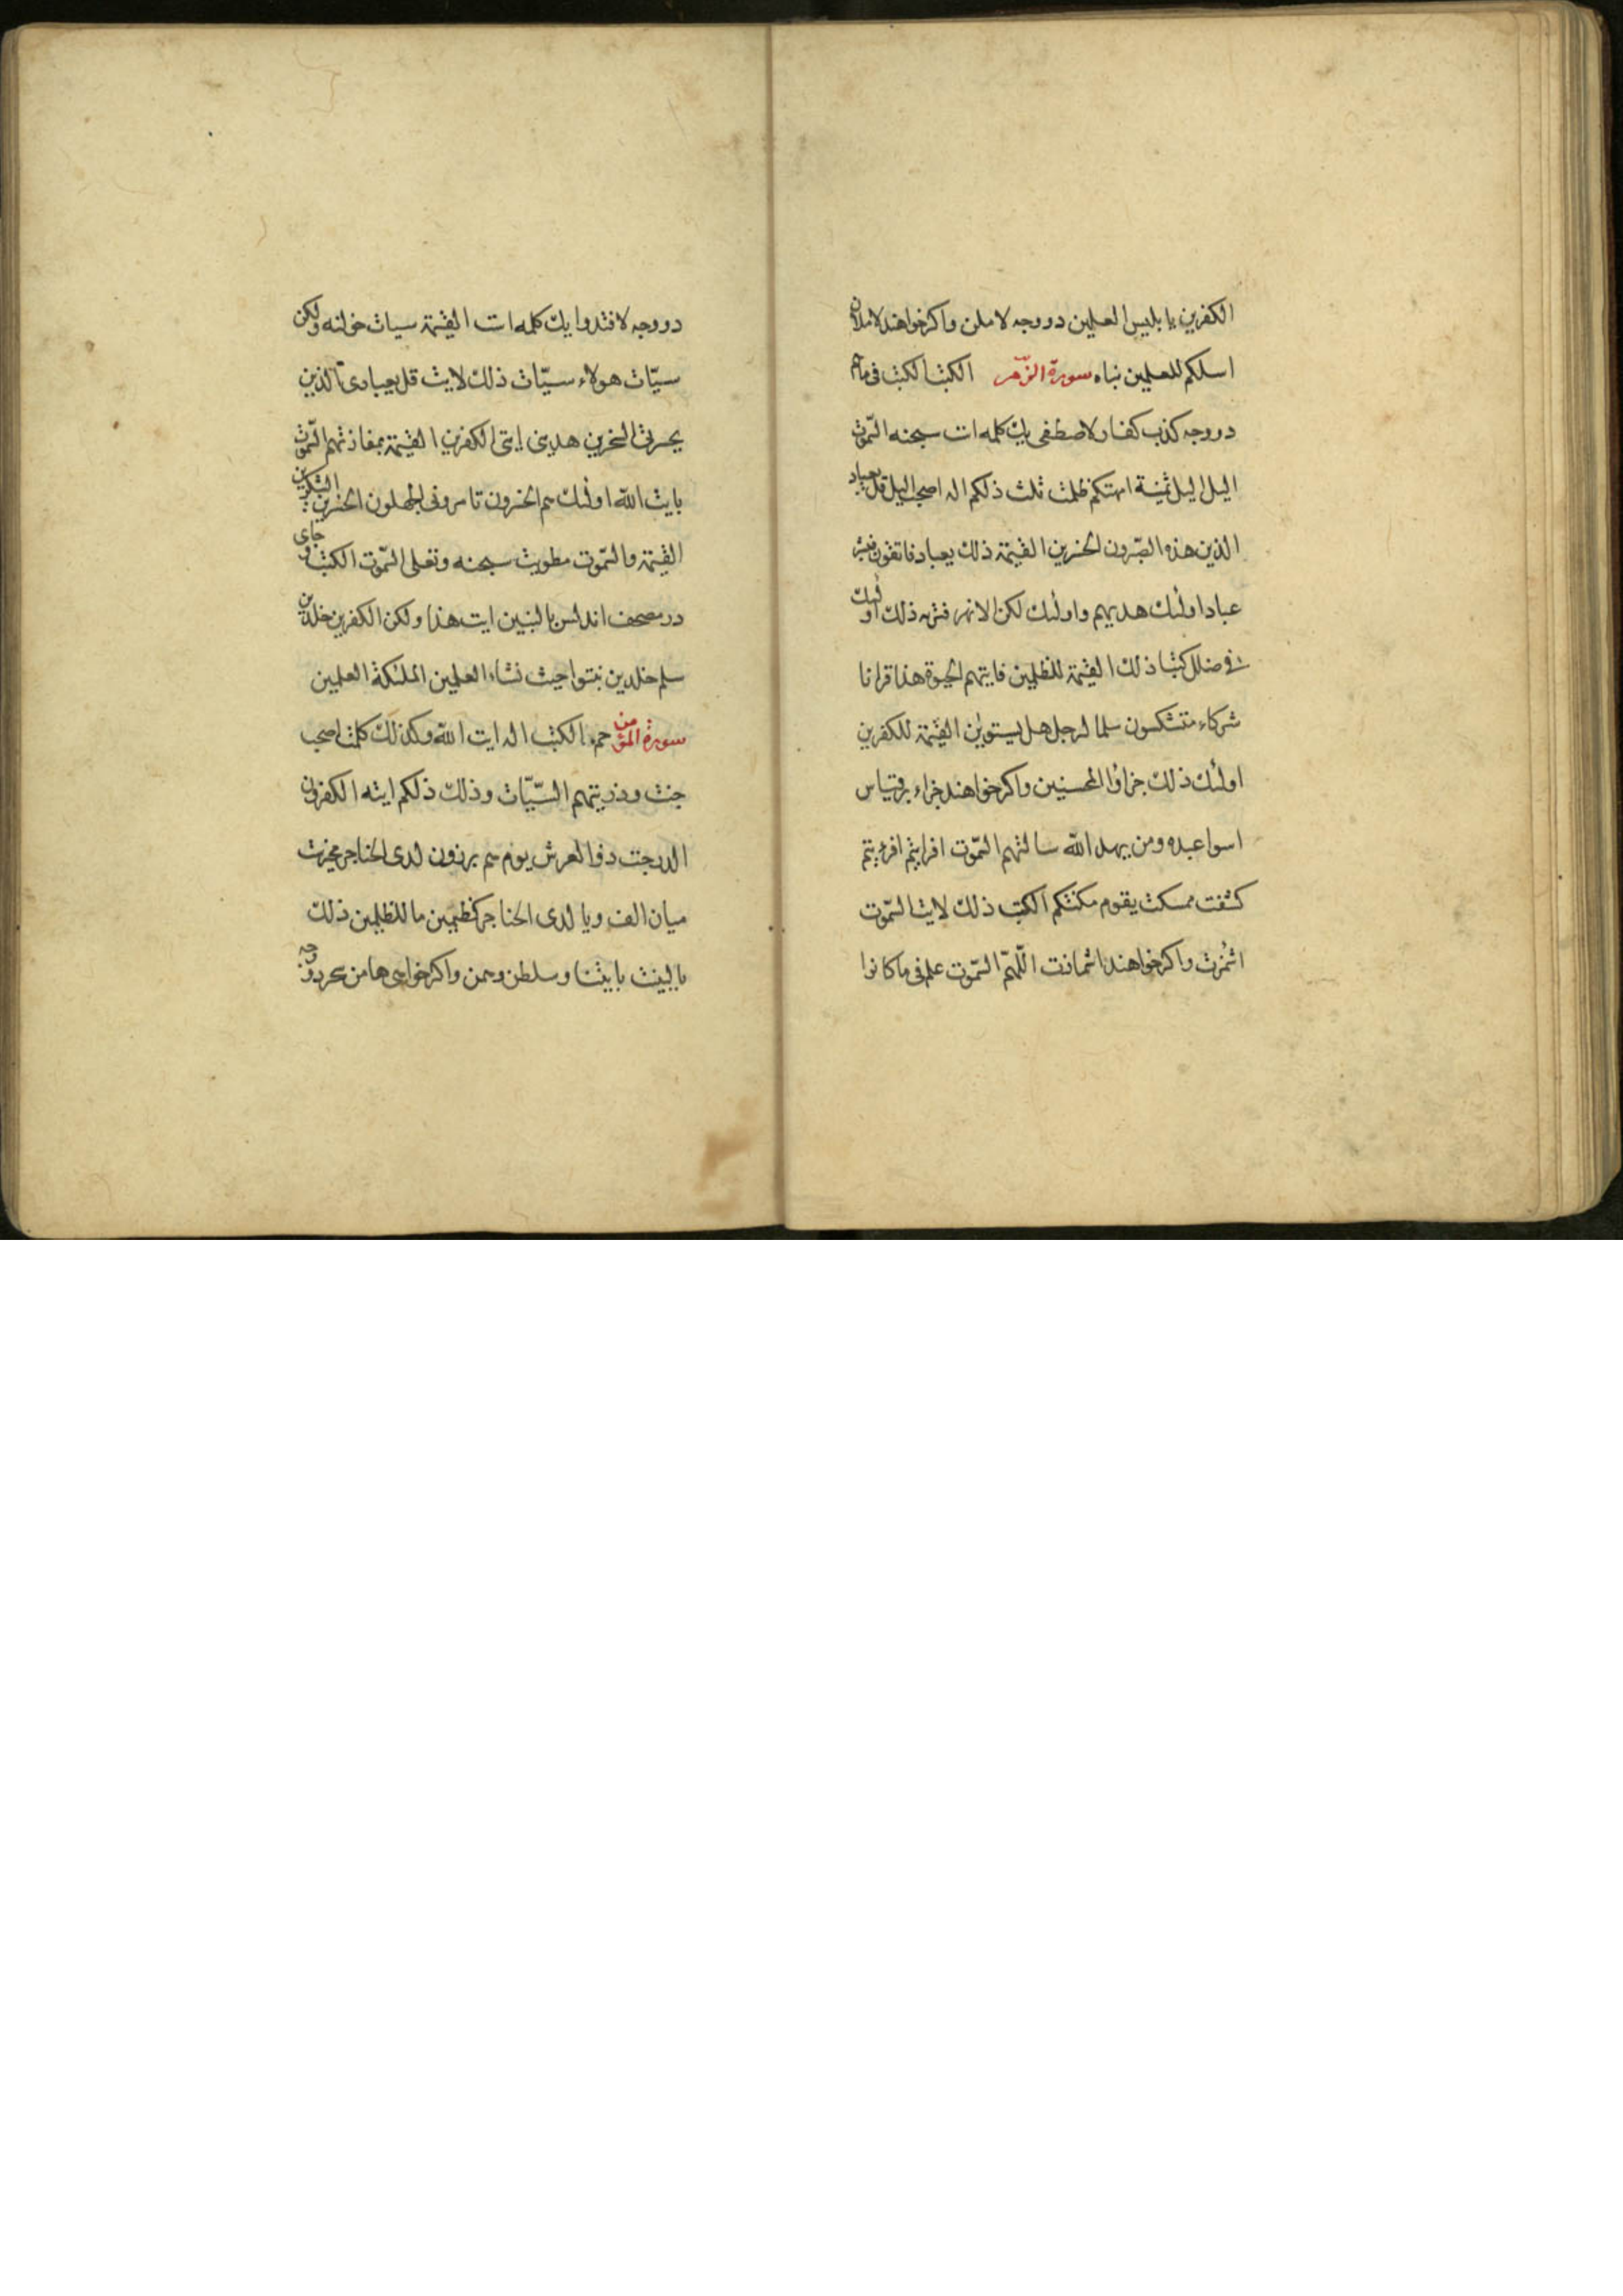 الكفرين يا بليس العلمين دو وجه لا ملن واكر خواهند لاملان
اسلكم للعلمين نباه سورة الزّمر الكتب الكتب فى ما هم
دو وجه كذب كفار لاصطفى يك كلمه است سبحنه السّموت
اليل اليل ثمنية امهتكم ظلمت ثلث ذلكم اله اصحب اليل قل يعباد
الذين هذه الصّبرون الخسرين القيمة ذلك يعباد فاتقون فبشر
عباد اولئك هديهم واولئك لكن الانهر فتريه ذلك اولئك
فى ضلل كتبا ذلك القيمة للظلمين فاتيهم الحيوة هذا قرانا
شركاء متشكسون سلما لرجل هل يستوين القيمة للكفرين
اولئك ذلك جزاؤا المحسنين واكر خواهند جزاء بر قياس
اسوا عبده ومن يهد الله سالتهم السّموت افرايتم افرءيتم
كشفت ممسكت يقوم مكنتكم الكتب ذلك لايت السّموت
اشمزت واكر خواهند اشمانت اللّهمّ السّموت علم فى ما كانوا
دو وجه لافتدوا يك كلمه است القيمة سيات خولنه ولكن
سيّات هولاء سيّات ذلك لايت قل يعبادى الّذين
يحسرتى السخرين هدينى ايتى الكفرين القيمة بمفازتهم السّموت
بايت الله اولئك هم الخسرون تامرونى الجهلون الخسرين الشكرين
القيمة والسّموت مطويت سبحنه وتعلى السّموت الكتب و جاى
در مصحف اندلس بالنبين ايت هذا ولكن الكفرين خلدين
سلم خلدين نبتوا حيث نشاء العلمين الملئكة العلمين
سورة المؤمن حم الكتب اله ايت الله وكذلك كلمت اصحب
جنت وذريتهم السّيّات وذلك ذلكم ايته الكفرون
الدرجت ذو العرش يوم هم برزون لدى الحناجر
ميان الف ويا لدى الحناجر كظمين ما للظلمين ذلك
بالبينت بايتنا وسلطن وهمن واكر خواهى هامن دو وجه